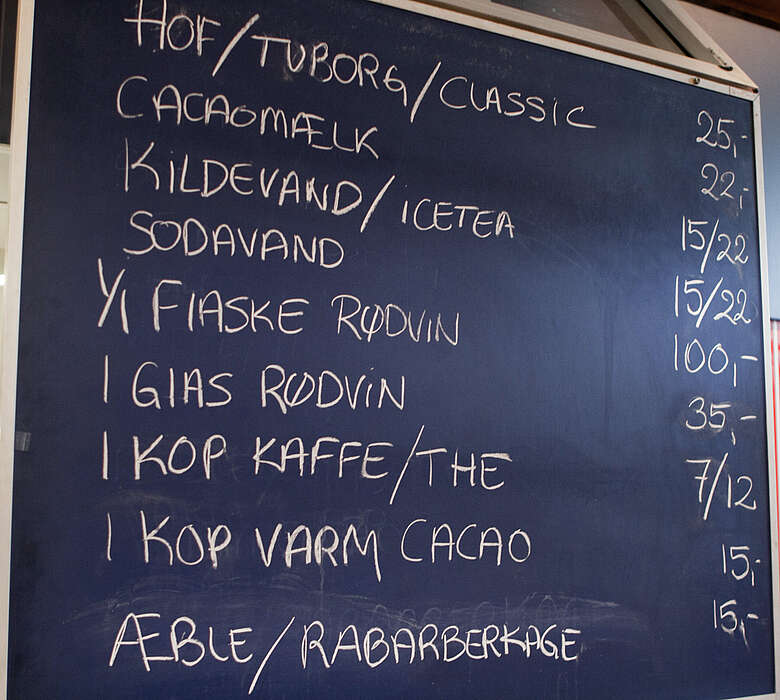 HOF/TUBORG/CLASSIC 25,-
CACAOMÆLK 22,-
KILDEVAND/ICETEA 15/22
SODAVAND 15/22
1/1 FlASKE RØDVIN 100,-
1 GlAS RØDVIN 35,-
1 KOP KAFFE/THE 7/12
1 KOP VARM CACAO 15,-
ÆBLE/RABARBERKAGE 15,-